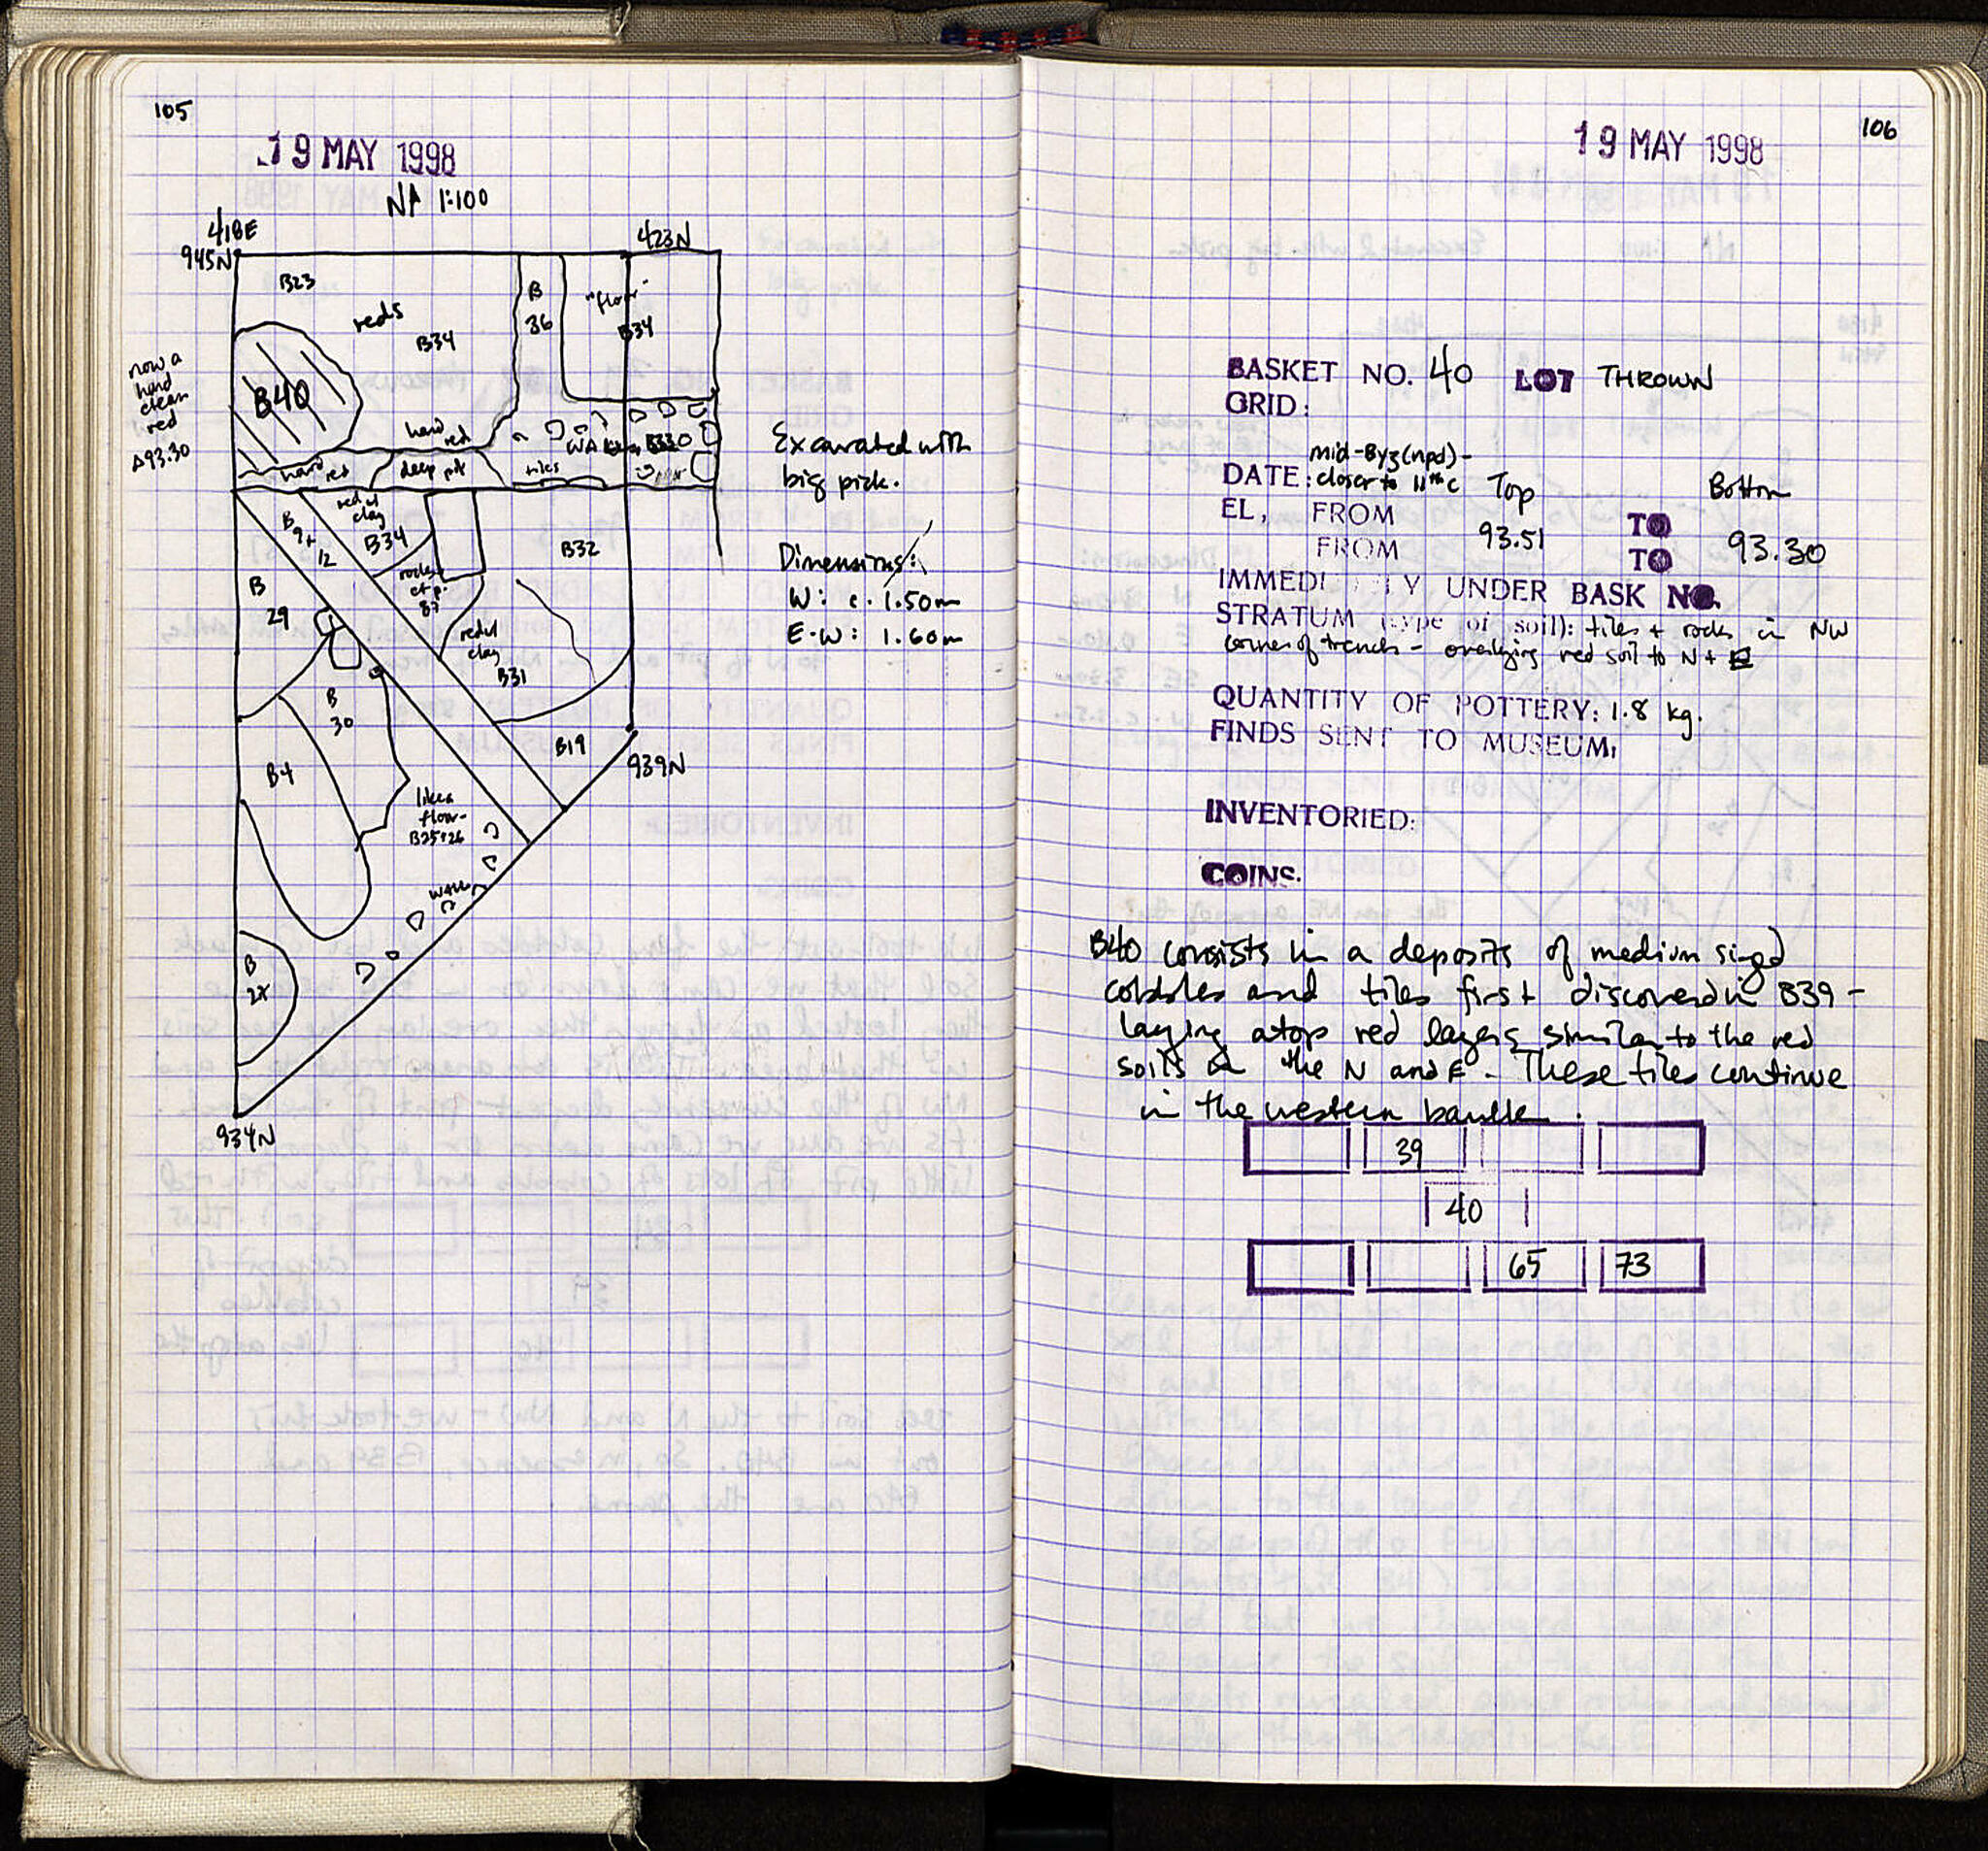 105
19 MAY 1998
N 1:100
418E
945N
423N
B23
reds
B34
B
36
"floor"
B34
now a
hard
clean
red
Δ93.30
B40
hard
red
hard red
deep pit
tiles
WALL
Excavated with
big pick.
B
9+
12
red
clay
B34
rocks
B32
B
29
red
clay
B31
Dimensions:
W: c. 1.50m
E-W: 1.60m
B
30
B4
B19
939N
floor-
B25+26
WALL
B
2X
934N
106
19 MAY 1998
BASKET NO. 40 LOT THROWN
GRID:
mid-Byz (npd)-
DATE: closer to 11th c
Top Bottom
EL, FROM TO
FROM 93.51 TO 93.30
IMMEDI TY UNDER BASK NO.
STRATUM (type of soil): tiles + rocks in NW
corner of trench - overlying red soil to N + E
QUANTITY OF POTTERY: 1.8 kg.
FINDS SENT TO MUSEUM:
INVENTORIED:
COINS.
B40 consists in a deposits of medium sized
cobbles and tiles first discovered in B39 -
laying atop red layers similar to the red
soils on the N and E. These tiles continue
in the western baulk.
39
40
65 73